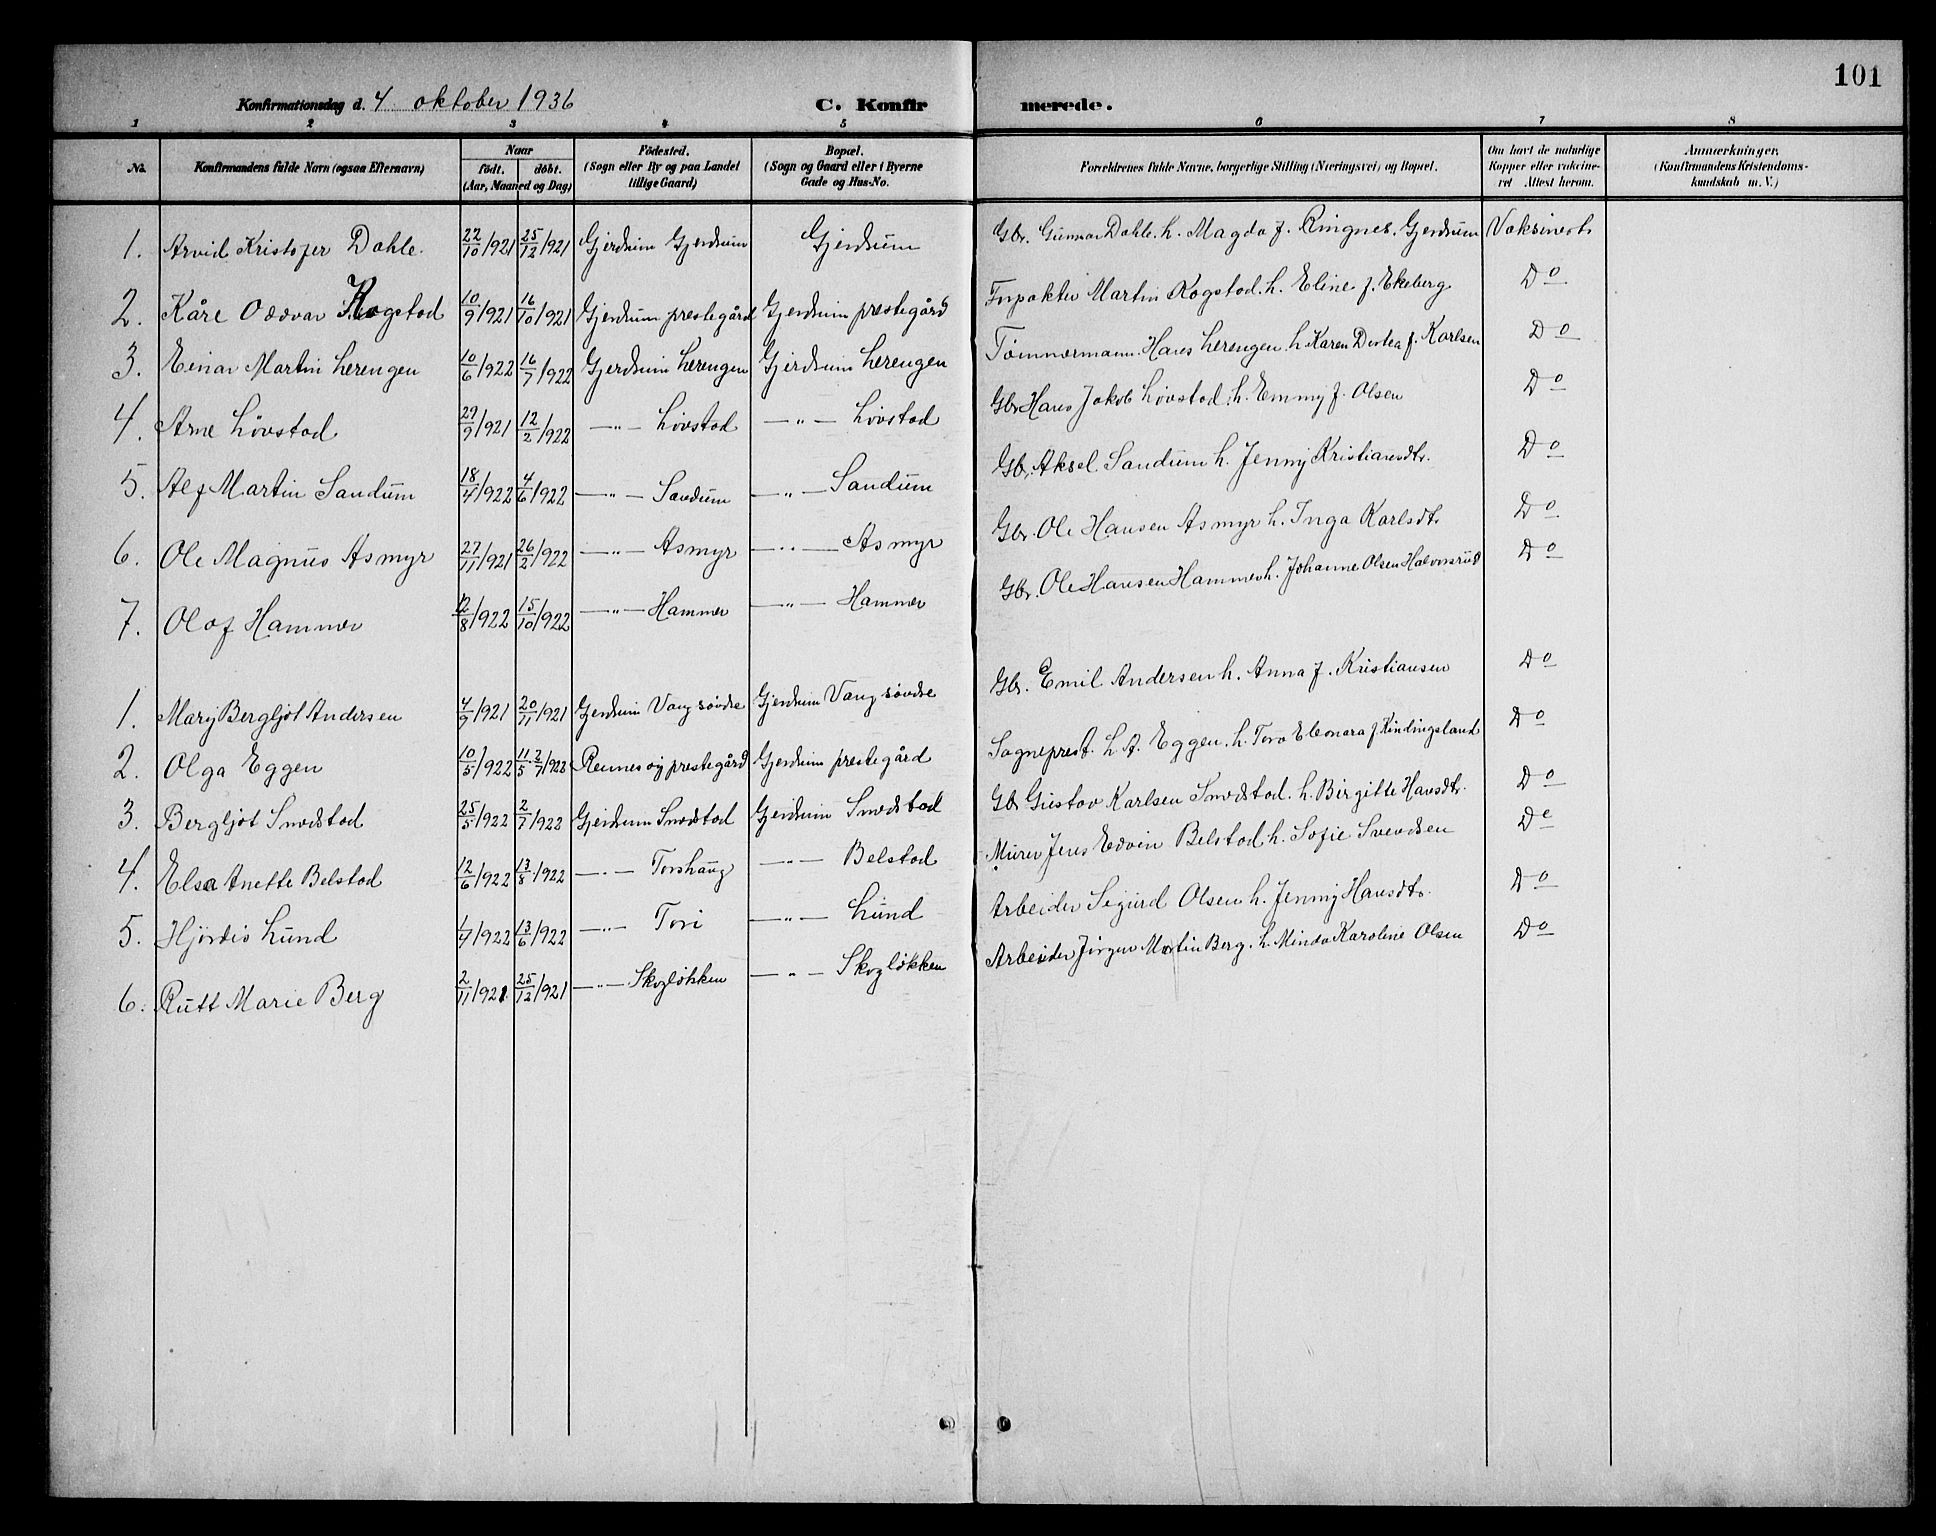 101
Konfirmationsdag d. 4 oktober 1936 C. Konfirmerede.
1 2 3 4 5 6 7 8
No. Konfirmandens fulde Navn (ogsaa Efternavn) Naar födt. döbt. (Aar, Maaned og Dag) Födested. (Sogn eller By og paa Landet tillige Gaard) Bopæl. (Sogn og Gaard eller i Byerne Gade og Hus-No. Forældrenes fulde Navne, borgerlige Stilling (Næringsvei) og Bopæl. Om havt de naturlige Kopper eller vakcineret Attest herom. Anmærkninger, (Konfirmandens Kristendomskundskab m. V.)
1. Arvid Kristofer Dahle. 22/10/921 25/12/921 Gjerdrum Gjerdrum Gjerdrum Gbr. Gunnar Dahle. h. Magda f. Ringnes. Gjerdrum Vaksinert
2. Kåre Oddvar Rogstad 10/9/921 16/10/921 Gjerdrum prestegård Gjerdrum prestegård Forpakter Martin Rogstad. h. Eline f. Ekeberg Do
3. Einar Martin Lerengen 10/6/922 16/7/922 Gjerdrum Lerengen Gjerdrum Lerengen Tømmermann. Hans Lerengen. h. Karen Dortea f. Karlsen Do
4. Arne Løvstad 29/9/921 12/2/922 —"— Løvstad —"— Løvstad Gbr Hans Jakob Løvstad. h. Emmy f. Olsen Do
5. Alf Martin Sandum 18/4/922 4/6/922 —"— Sandum —"— Sandum Gbr. Aksel Sandum h. Jenny Kristiansdtr. Do
6. Ole Magnus Asmyr 27/11/921 26/2/922 —"— Asmyr —"— Asmyr Gbr. Ole Hansen Asmyr h. Inga Karlsdtr Do
7. Olaf Hammer 12/8/922 15/10/922 —"— Hammer —"— Hammer Gbr. Ole Hansen Hammer h. Johanne Olsen Halvorsrud Do
1. Mary Bergljot Andersen 4/9/921 20/11/921 Gjerdrum Vang søndre Gjerdrum Vang søndre Gbr. Emil Andersen h. Anna f. Kristiansen Do
2. Olga Eggen 10/5/922 11/5 2/7/922 Rennesøy prestegård Gjerdrum prestegård Sogneprest. L. A. Eggen. h. Tora Eleonora f. Kindingsland Do
3. Bergljot Smedstad 25/5/922 2/7/922 Gjerdrum Smedstad Gjerdrum Smedstad Gbr Gustav Karlsen Smedstad. h. Birgitte Hansdtr. Do
4. Elsa Anette Belstad 12/6/922 13/8/922 —"— Torshaug —"— Belstad Murer Jens Edvin Belstad h. Sofie Svendsen Do
5. Hjørdis Lund 1/4/922 13/6/922 —"— Tori —"— Lund Arbeider Sigurd Olsen h. Jenny Hansdtr. Do
6. Rutt Marie Berg 2/11/921. 25/12/921 —"— Skogløkken —"— Skogløkken Arbeider Jørgen Martin Berg. h. Minda Karoline Olsen Do